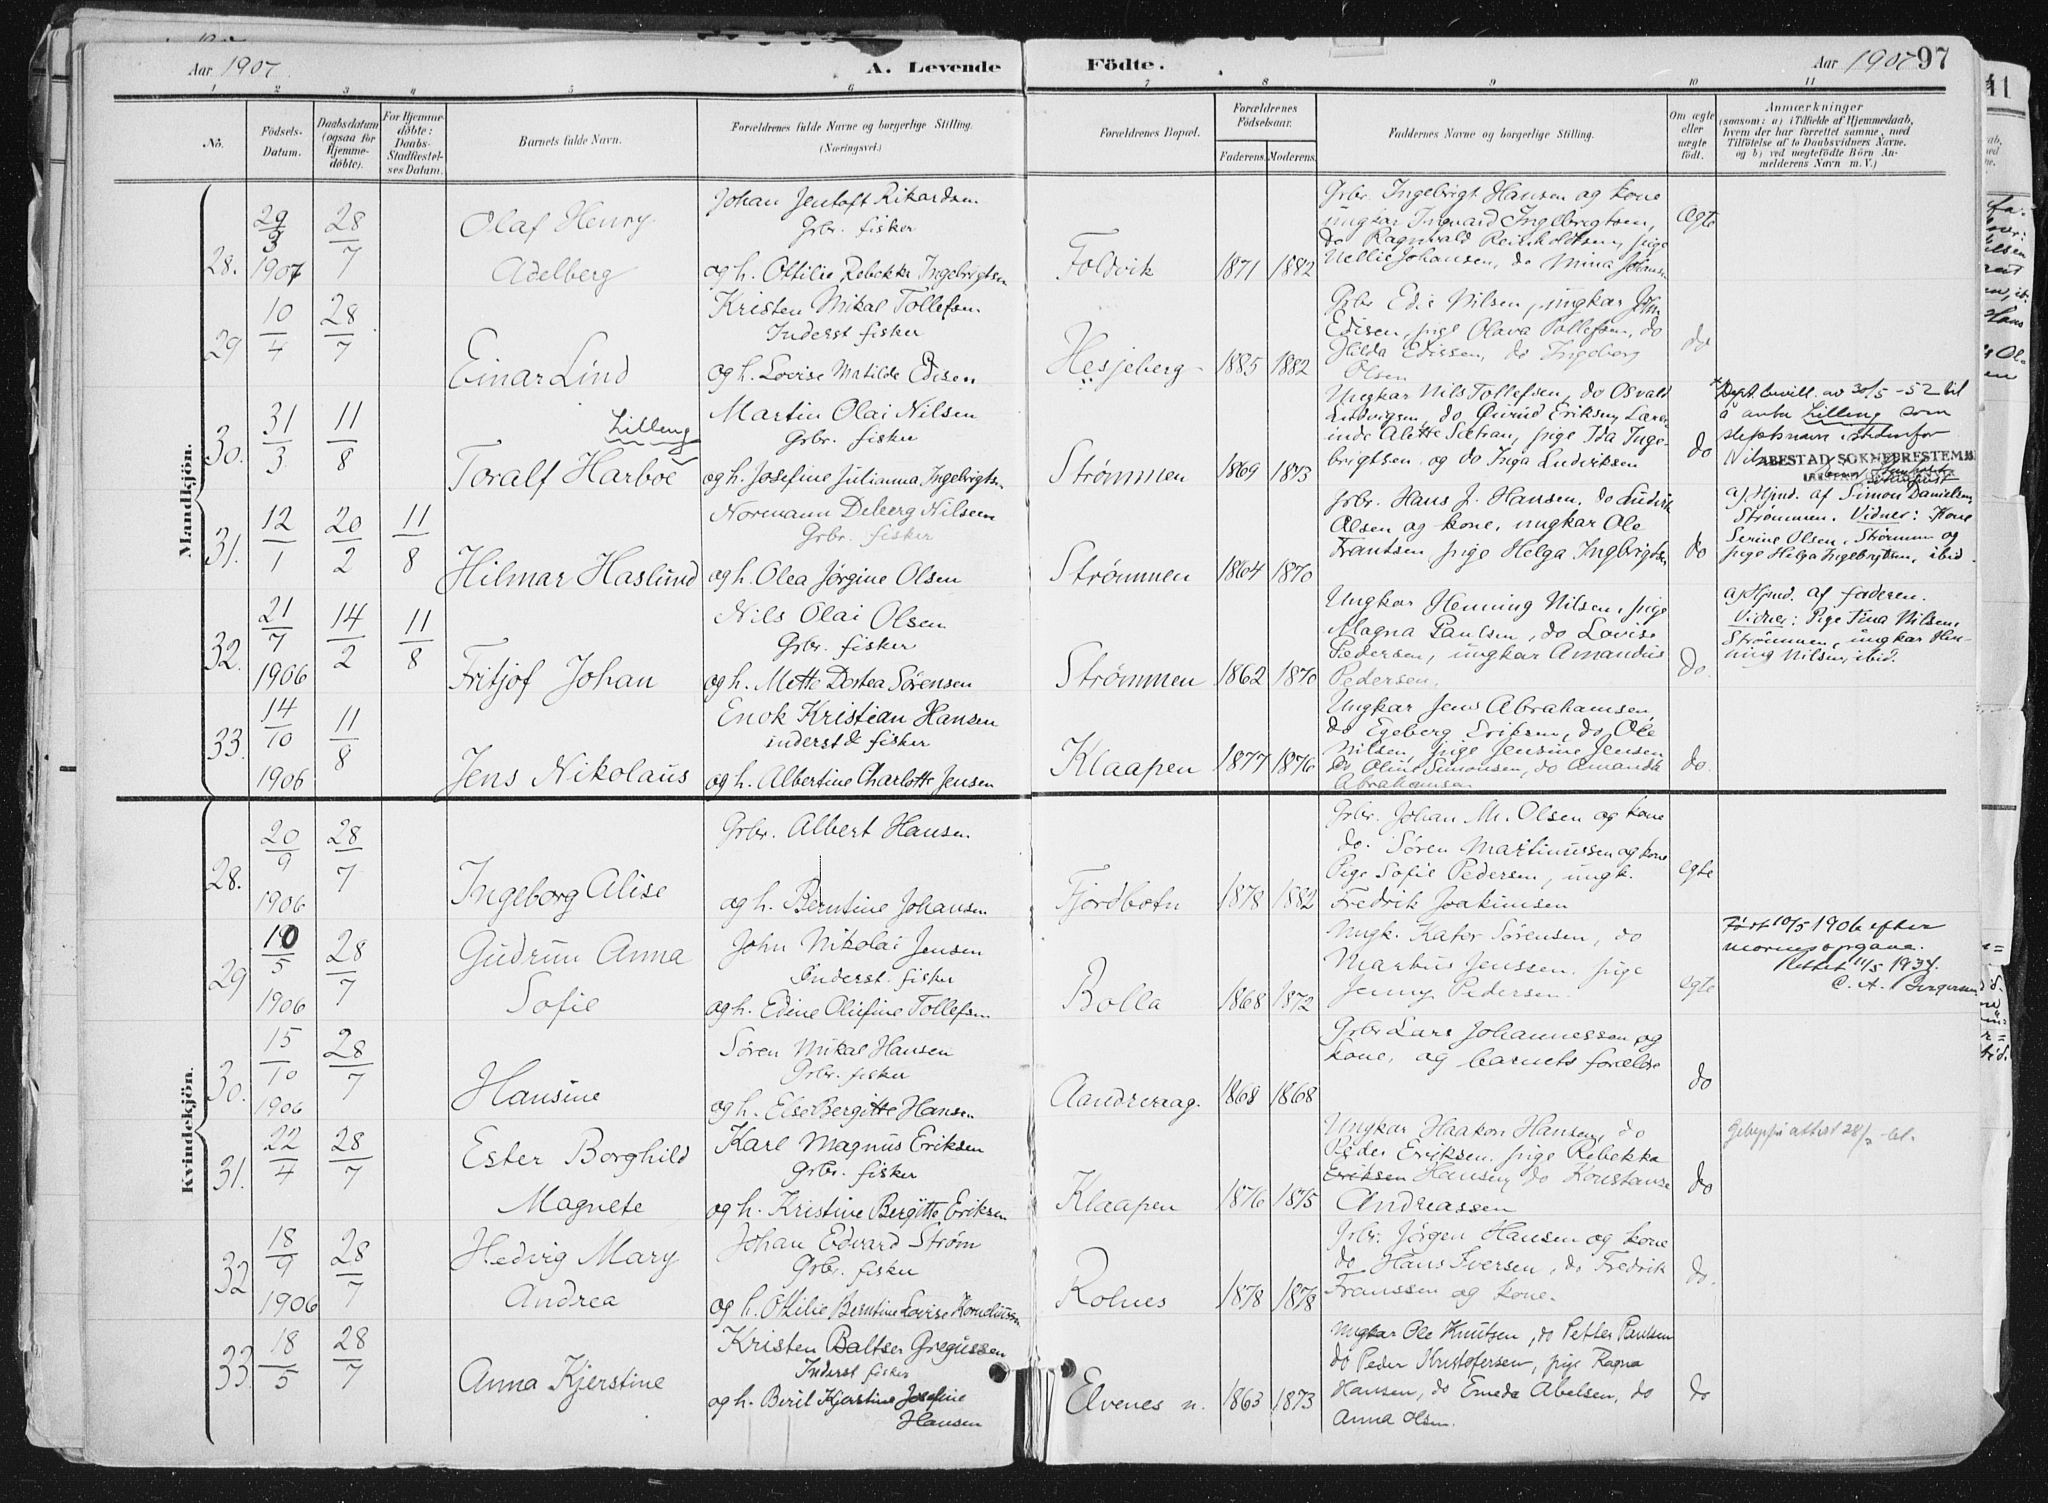 Aar 1907.
A. Levende
Födte.
Aar 1907
97
1 2 3 4 5 6 7 8 9 10 11
Nö.
Födsels-
Datum.
Daabsdatum
(ogsaa for
Hjemme-
døbte).
For Hjemme-
døbte:
Daabs-
Stadfæstel-
ses Datum.
Barnets fulde Navn.
Forældrenes fulde Navne og borgerlige Stilling.
(Næringsvei.)
Forældrenes Bopæl.
Forældrenes
Födselsaar.
Faderens. Moderens.
Faddernes Navne og borgerlige Stilling.
Om ægte
eller
uægte
født.
Anmærkninger
(saasom: a) i Tilfælde af Hjemmedaab,
hvem der har forrettet samme, med
Tilföielse af to Daabsvidners Navne.
og b) ved uægtefödte Börn An-
melderens Navn m. V.)
Mandkjön.
28.
29/3 1907
28/7
Olaf Henry
Adelberg
Johan Jentoft Rikardsen
Grbr. fisker
og h. Ottilie Rebekka Ingebrigtsen
Foldvik
1871 1882
Grbr. Ingebrigt Hansen og kone
ungkar Ingvard Ingebrigtsen,
do Ragnvald Reinholdtsen, pige
Nellie Johansen, do Mina Johansen
Ægte
29
10/4
28/7
Einar Lind
Kristen Mikal Tollefsen
Inderst fisker
og h. Lovise Matilde Edisen
Hesjeberg
1885 1882
Grbr Edis Nilsen, ungkar John
Edisen, pige Olava Tollefsen, do
Hilda Edissen, do Ingeborg
Olsen
do
30.
31/3
11/8
Lilleng
Toralf Harboe
Martin Olai Nilsen
Grbr. fisker
og h. Josefine Julianna Ingebrigtsen
Strømmen
1869 1873
Ungkar Nils Tollefsen, do Osvald
Ludvigsen, do Øivind Eriksen, Lærer-
inde Alette Sætran, pige Ida Inge-
brigtsen og do Inga Ludviksen
do
Dept. bevill. av 30/5-52 til
å anta Lilleng som
slektsnavn istedenfor
Nilsen
IBESTAD SOKNEPRESTEMB
31.
12/1
20/2
11/8
Hilmar Haslund
Normann Deberg Nilsen
Grbr. fisker
og h. Olea Jørgine Olsen
Strømmen
1864 1870
Grbr. Hans J. Hansen, do Ludvik
Olsen og kone, ungkar Ole
Frantsen, pige Helga Ingbrigtsen
do
a) Hjmd. af Simon Danielsen,
Strømmen. Vidner: Kone
Serine Olsen, Strømmen og
pige Helga Ingebrigtsen, ibid.
32.
21/7 1906
14/2
11/8
Fritjof Johan
Nils Olai Olsen
Grbr. fisker
og h. Mette Dortea Sørensen
Strømmen
1862 1870
Ungkar Henning Nilsen, pige
Magna Paulsen, do Lovise
Pedersen, ungkar Amandus
Pedersen.
do.
a) Hjmd. af faderen.
Vidner: Pige Tina Nilsen,
Strømmen, ungkar Hen-
ning Nilsen, ibid.
33.
14/10 1906
11/8
Jens Nikolaus
Enok Kristian Hansen
inderst & fisker
og h. Albertine Charlotte Jensen
Klaapen
1877 1876
Ungkar Jens Abrahamsen,
do Egeberg Eriksen, do Ole
Nilsen, pige Jensine Jensen
do Oline Simonsen, do Amanda
Abrahamsen
do.
Kvindekjön.
28.
20/9 1906
28/7
Ingeborg Alise
Grbr. Albert Hansen
og h. Berntine Johansen
Fjordbotn
1878 1882
Grbr. Johan M. Olsen og kone
do. Søren Martinussen og kone
Pige Sofie Pedersen, ungk.
Fredrik Joakimsen
egte
29
10/5 1906
28/7
Gudrun Anna
Sofie
John Nikolai Jensen
Inderst. fisker
og h. Edine Olufine Tollefsen
Bolla
1868 1872
Ungk. Kater Sørensen, do
Markus Jenssen, pige
Jenny Pedersen.
egte
Født 10/5 1906 efter
morens opgave.
Rettet 11/5 1934.
30.
15/10 1906
28/7
Hansine
Søren Mikal Hansen
Grbr. fisker
og h. Else Bergitte Hansen
Aandreraag.
1868 1868
Grbr Lars Johannessen og
kone, og barnets forældre
do
31.
22/4
28/7
Ester Borghild
Magnete
Karl Magnus Eriksen
Grbr. fisker
og h. Kristine Bergitte Eriksen
Klaapen
1876 1875
Ungkar Haakon Hansen, do
Peder Eriksen, pige Rebekka
Eriksen Hansen, do Konstanse
Andreassen
do
32
18/9 1906
28/7
Hedvig Mary
Andrea
Johan Edvard Strøm
Grbr. fisker
og h. Ottilie Berntine Lovise Korneliussen
Rolnes
1878 1878
Grbr. Jørgen Hansen og kone
do Hans Iversen, do Fredrik
Franssen og kone.
do.
33
18/5
28/7
Anna Kjerstine
Kristen Baltser Gregussen
Inderst fisker
og h. Beril Kjerstine Josefine
Hansen
Elvenes n.
1863 1873
Ungkar Ole Knutsen, do Petter Paulsen
do Peder Kristofersen, pige Ragna
Hansen, do Emeda Abelsen, do
Anna Olsen.
do